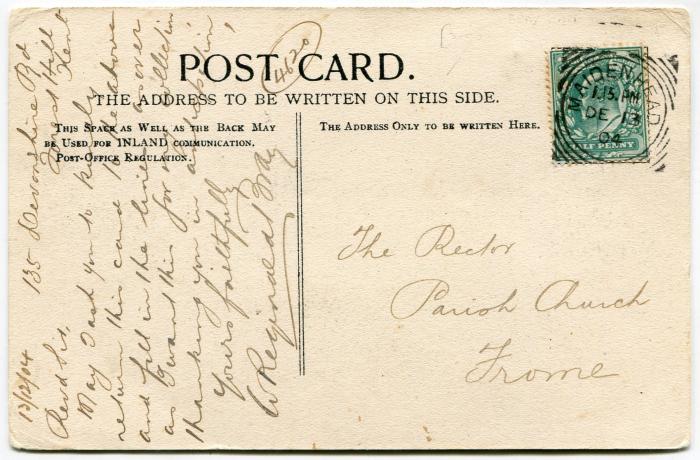 POST CARD.
THE ADDRESS TO BE WRITTEN ON THIS SIDE.
THIS SPACE AS WELL AS THE BACK MAY
BE USED FOR INLAND COMMUNICATION.
POST-OFFICE REGULATION.
THE ADDRESS ONLY TO BE WRITTEN HERE.
4620
MAIDENHEAD
1.15 PM
DE 13
04
HALF PENNY
The Rector
Parish Church
Frome
135 Devonshire Rd
Forest Hill
Kent
13/12/04
Revd Sir,
May I ask you to kindly
return this card to the above
and fill in the lines as over
as I want this for my collection
thanking you in anticipation,
Yours faithfully
W Reginald Bray